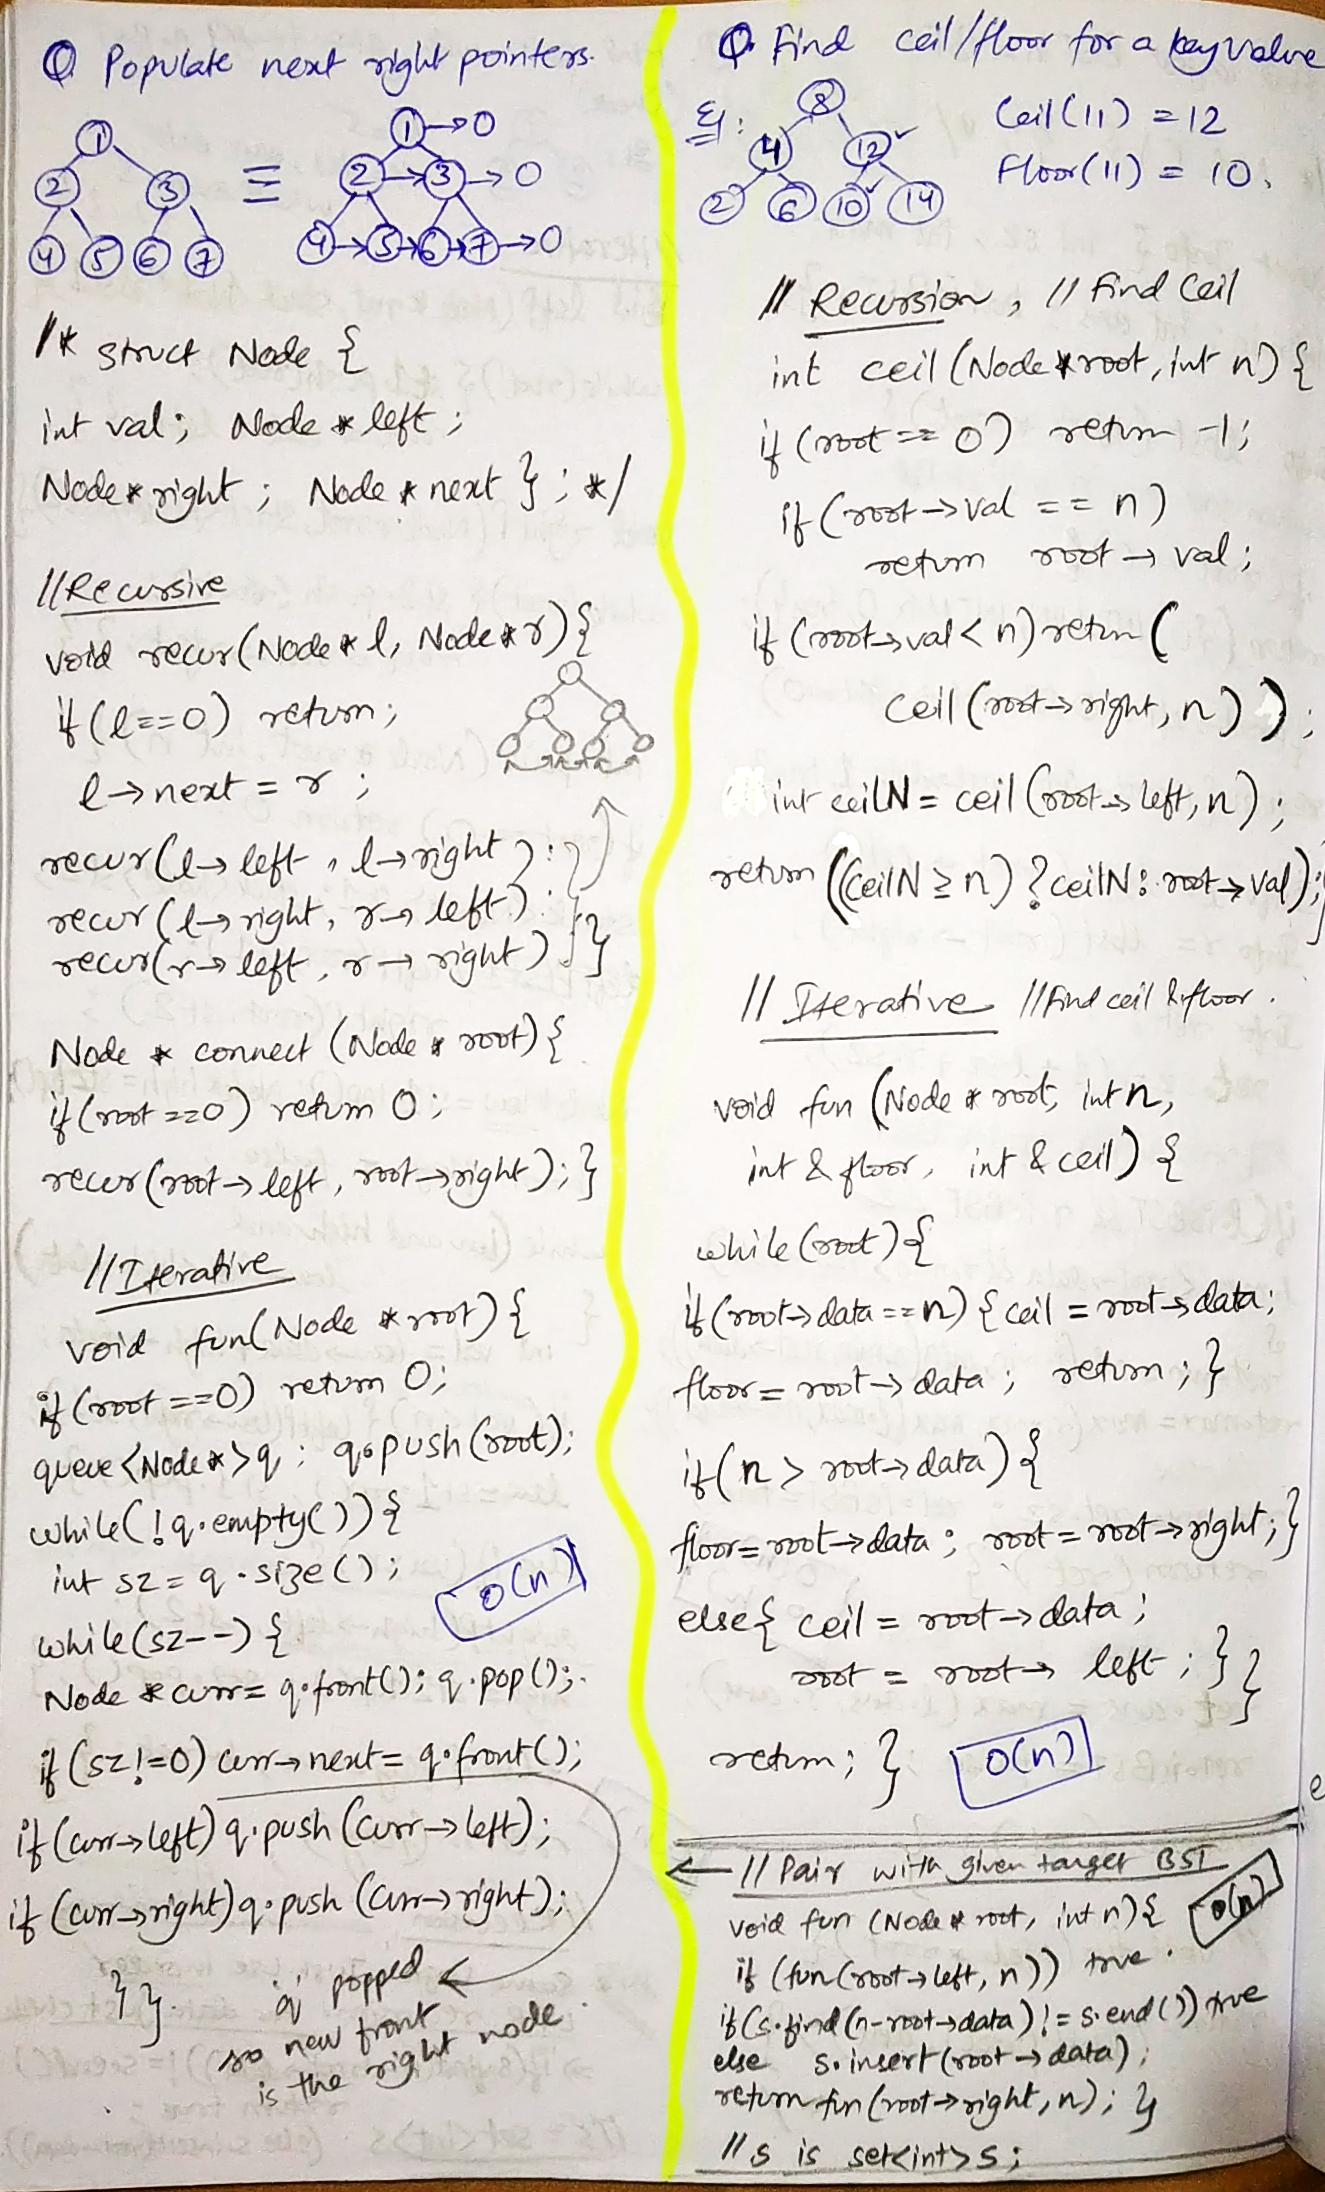 Q Populate next right pointers.
1
2 3
4 5 6 7
≡
1→0
2→3→0
4→5→6→7→0
/* struct Node {
int val; Node * left;
Node * right; Node * next }; */
//Recursive
void recur(Node * l, Node * r){
if (l==0) return;
l→next = r;
recur(l→left, l→right);
recur(l→right, r→left);
recur(r→left, r→right) }
Node * connect (Node * root) {
if (root==0) return 0;
recur(root→left, root→right);}
//Iterative
void fun(Node *root) {
if (root==0) return 0;
queue<Node*>q; q.push(root);
while(!q.empty()){
int sz = q.size();
O(n)
while(sz--) {
Node * curr= q.front(); q.pop();
if (sz!=0) curr→next= q.front();
if (curr→left) q.push(curr→left);
if (curr→right) q.push(curr→right);
}}.
'q' popped
so new front
is the right node.
Q. Find ceil/floor for a key value
Eg:
8
4 12
2 6 10 14
Ceil(11) = 12
Floor(11) = 10.
// Recursion, // Find Ceil
int ceil (Node *root, int n) {
if (root == 0) return -1;
if (root→val == n)
return root→val;
if (root→val < n) return (
ceil (root→right, n) );
int ceilN = ceil (root→left, n);
return ((ceilN ≥ n) ? ceilN : root→val);}
// Iterative //Find ceil & floor.
void fun (Node * root, int n,
int & floor, int & ceil) {
while (root) {
if (root→data == n) { ceil = root→data;
floor = root→data; return; }
if (n > root→data) {
floor = root→data; root = root→right; }
else { ceil = root→data;
root = root→left; } }
return; } O(n)
// Pair with given target BST
void fun (Node * root, int n) { O(n)
if (fun(root→left, n)) true.
if (s.find(n-root→data) != s.end()) true
else s.insert(root→data);
return fun(root→right, n); }
// s is set<int> s;